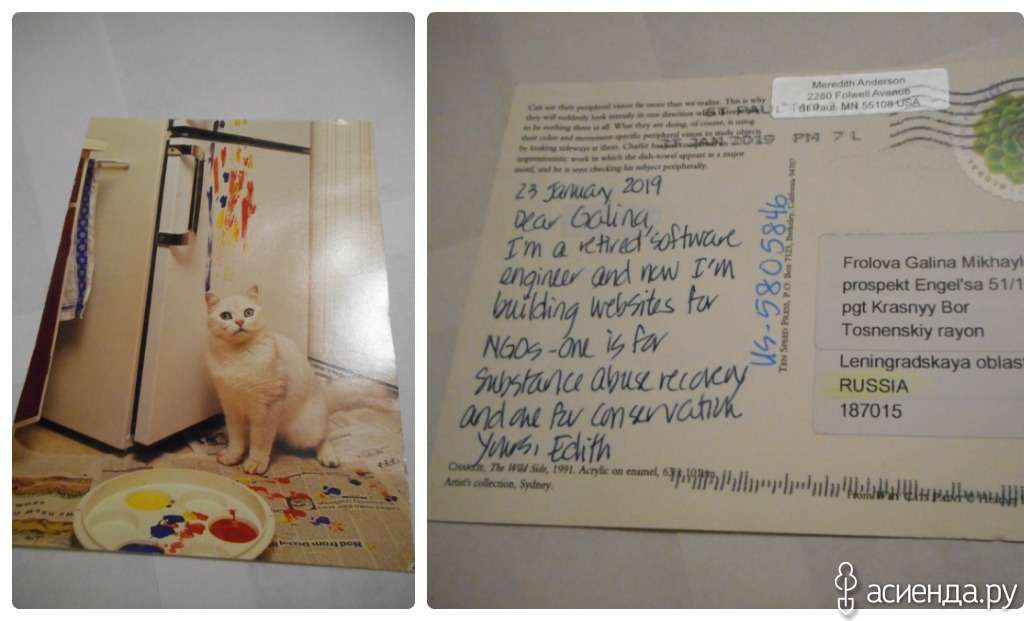 Meredith Anderson
2280 Folwell Avenue
St Paul, MN 55108 USA
ST PAUL
JAN 2019 PM 7 L
Can use their peripheral vision far more than we realize. This is why
they will suddenly look intently in one direction when there
to be nothing there at all. What they are doing, of course, is using
their color and movement-specific peripheral vision to study objects
by looking sideways at them. Charlie
impressionistic work in which the dish-towel appears as a major
motif, and he is seen checking his subject peripherally.
23 January 2019
Dear Galina,
I'm a retired software
engineer and now I'm
building websites for
NGOs - one is for
substance abuse recovery
and one for conservation
Yours, Edith
US-5805846
Ten Speed Press, P.O. Box 7123, Berkeley, California 94707
Frolova Galina Mikhayl
prospekt Engel'sa 51/1
pgt Krasnyy Bor
Tosnenskiy rayon
Leningradskaya oblast
RUSSIA
187015
Charlie, The Wild Side, 1991. Acrylic on enamel,
Artist's collection, Sydney.
From Why Cats Paint ©
асиенда.ру